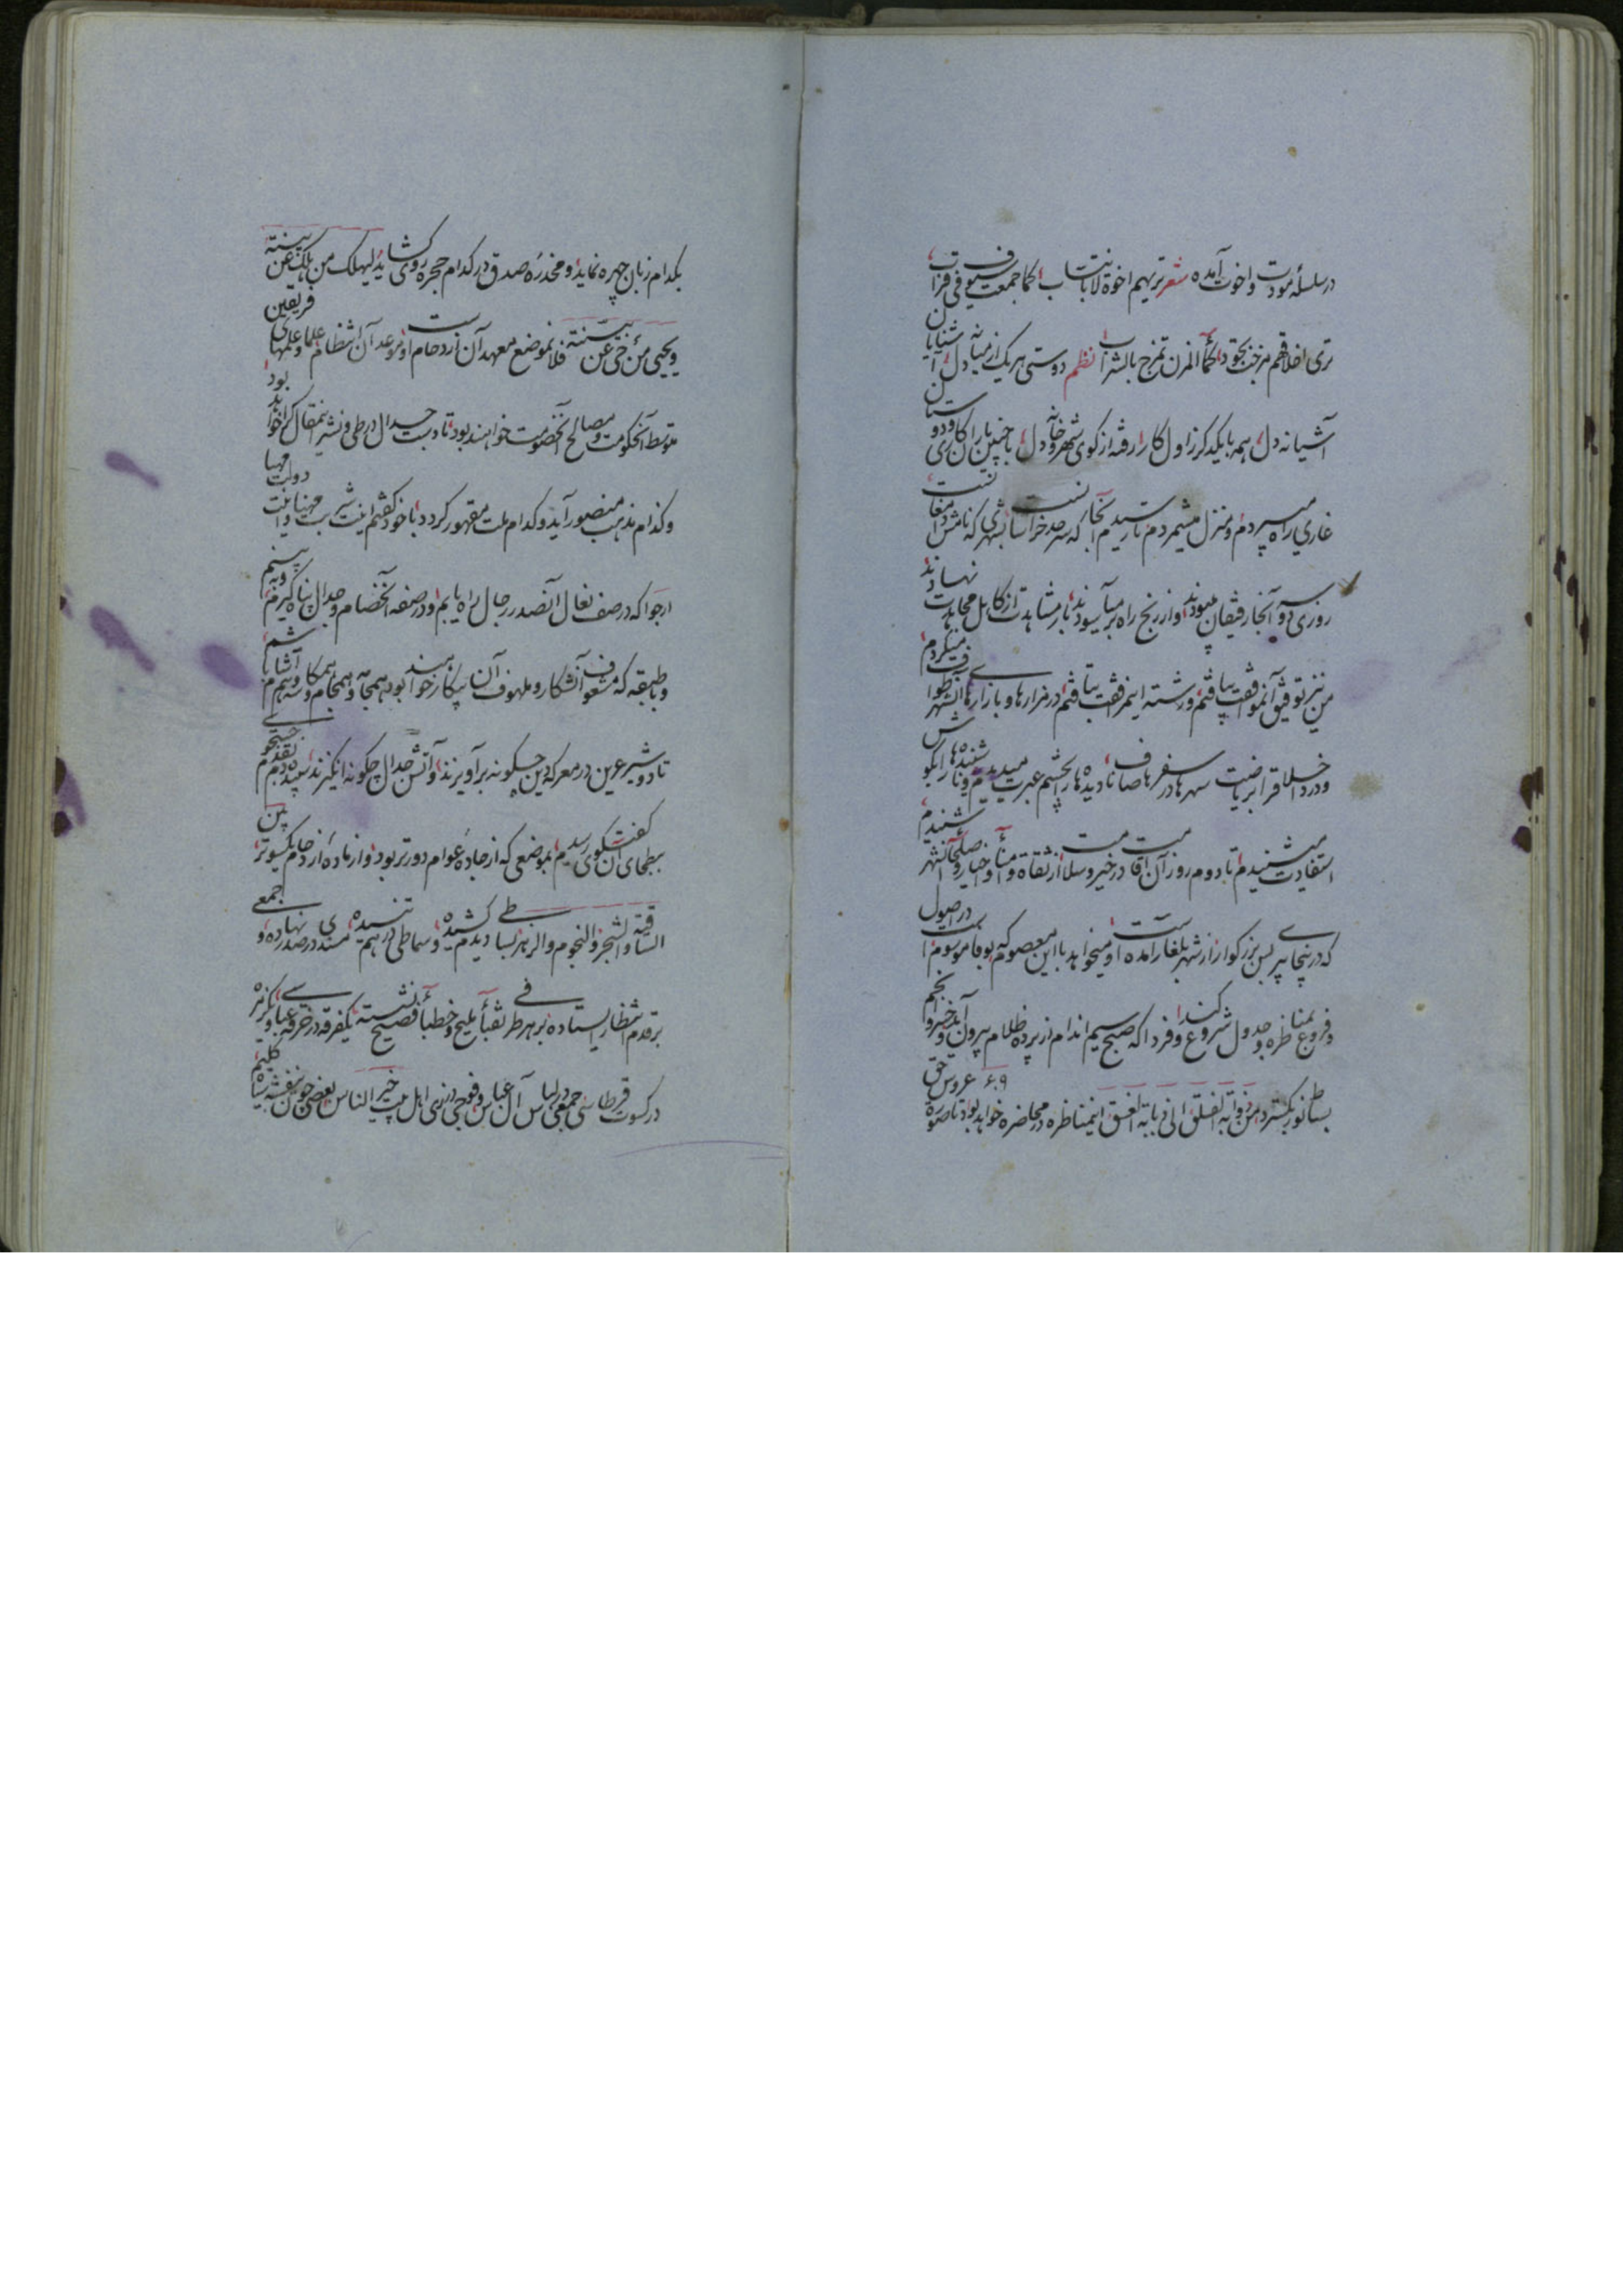 در سلسلهٔ مودت و اخوت آمده شعر تریهم اخوة لا بانتساب کما جمعت سیوف فی قراب
تری اخلاقهم مزجت بجود کماء المزن تمزج بالشراب نظم دوستی هر یک از میانه شنایان دل
آشیانه دل همه با یکدگر ز اول کار رفته از کوی شهر و خانه دل با چنین یاران کاری و دوستان
غاری راه میسپردم و منزل میشمردم تا رسیدم آنجا که سرحد خراسانست بشهری که نامش دامغانست
روزی دو آنجا رفیقان ببودند و از رنج راه برآسودند بار مشاهدت از کاهل مجاهدت بنهادند
من نیز توفیق آنموافقت بیافتم و رشته این مرافقت بتافتم در مزارها و بازارهای آنشهر طواف میکردم
و در دخلا قرا بریاضت سهرها در سفرها صاف نادیدهها را بچشم عبرت میدیدم و ناشنیدهها را بگوش
استفادت میشنیدم تا دوم روز آن اقامت در خیر و سلامت از ثقاة و امنأ و اخیار و صلحأ آنشهر شنیدم
که درینجا پیری بس بزرگوار از شهر بلغار آمده است و میخواهد با این معصوم که بوفا موسومست در اصول
و فروع بمناظره و جدول شروع کند و فردا که صبح سیم اندام از پرده ظلام بیرون آید و خسرو انجم
بساط نور بگسترد من ذوابة الفلق الی ذبابة الغسق اینمناظره و محاضره خواهد بود تا صورت عروس حق
بکدام زبان چهره نماید و مخدرهٔ صدق در کدام حجره روی گشاید لیهلک من هلک عن بینة
و یحیی من حی عن بینة فلانموضع معهد آن ازدحام است و موعد آن انتظام علما و علمهای فریقین
متوسط آنحکومت و مصالح آنخصومت خواهند بود تا دست جدال در طی و نشر اینمقال کرا خواهد بود
و کدام مذهب منصور آید و کدام ملت مقهور گردد با خود گفتم اینت شربت مهنا و اینت دولت مهیا
ارجوا که در صف نعال آنصدر رجال براه یابم و در صفه آنخصام و جدال پناه گیرم و به بینم
و با طبقه که مشعوف آنشکار و ملهوف آن پیکار خواهند بود همجامه و همجام و همکاسه و هم آشام باشم
تا دو شیر عرین در معرکه دین چگونه برآویزند و آتش جدال چگونه انگیزند سپیده دم بقدم جستجوی
ببطحای آن گفتگوی رسیدم بموضعی که از جادهٔ عوام دورتر بود و از مادهٔ ازدحام یکسوتر من
الساقة و الشجر و النجوم و الزهر بساطی دیدم کشیده و سماطی درهم تنیده مسندی در صدر نهاده و جمعی
بر قدم انتظار ایستاده بر هر طرفی نقبأ ملیح و خطبأ فصیح نشسته یکفرقه در خرقه عباسی و یکزمره
در کسوت قرطاسی جمعی در لباس آل عباس و فوجی در زی اهل بیت خیر الناس بعضی چون بنفشه سیاه گلیم